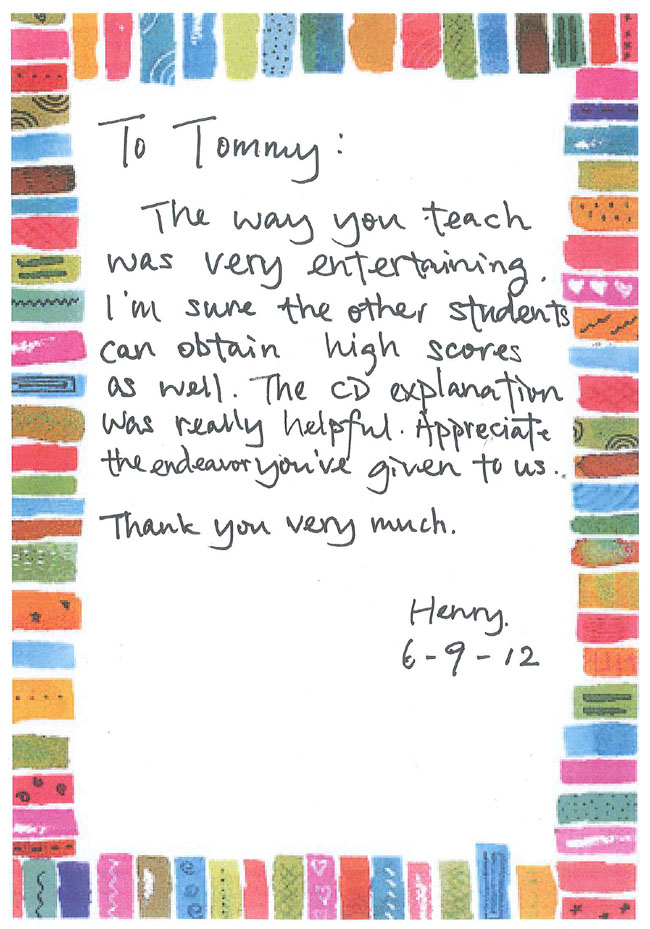 To Tommy:
The way you teach
was very entertaining.
I'm sure the other students
can obtain high scores
as well. The CD explanation
was really helpful. Appreciate
the endeavor you've given to us..
Thank you very much.
Henry.
6-9-12